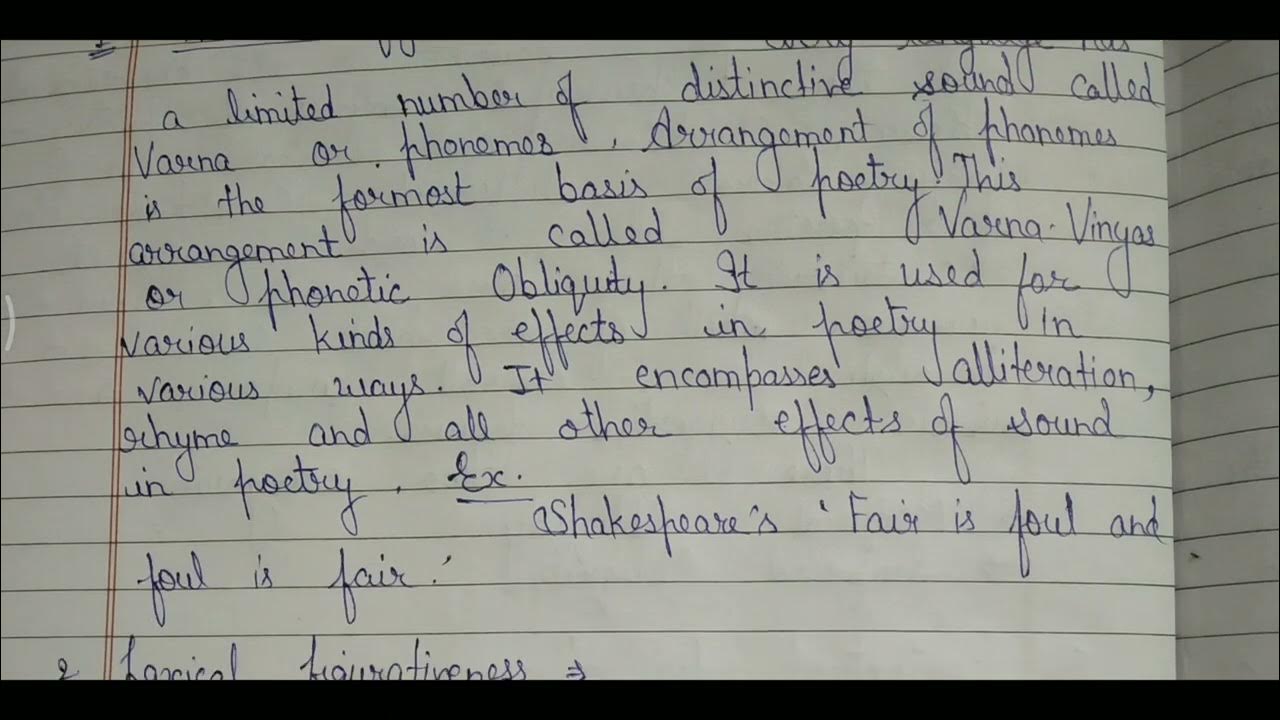 every language has
a limited number of distinctive sound called
Varna or phonemes, Arrangement of phonemes
is the formost basis of poetry. This
arrangement is called Varna-Vinyas
or phonetic Obliquity. It is used for
various kinds of effects in poetry in
various ways. It encompasses alliteration,
rhyme and all other effects of sound
in poetry. Ex.
Shakespeare's 'Fair is foul and
foul is fair.'
2 Lexical figurativeness ⇒